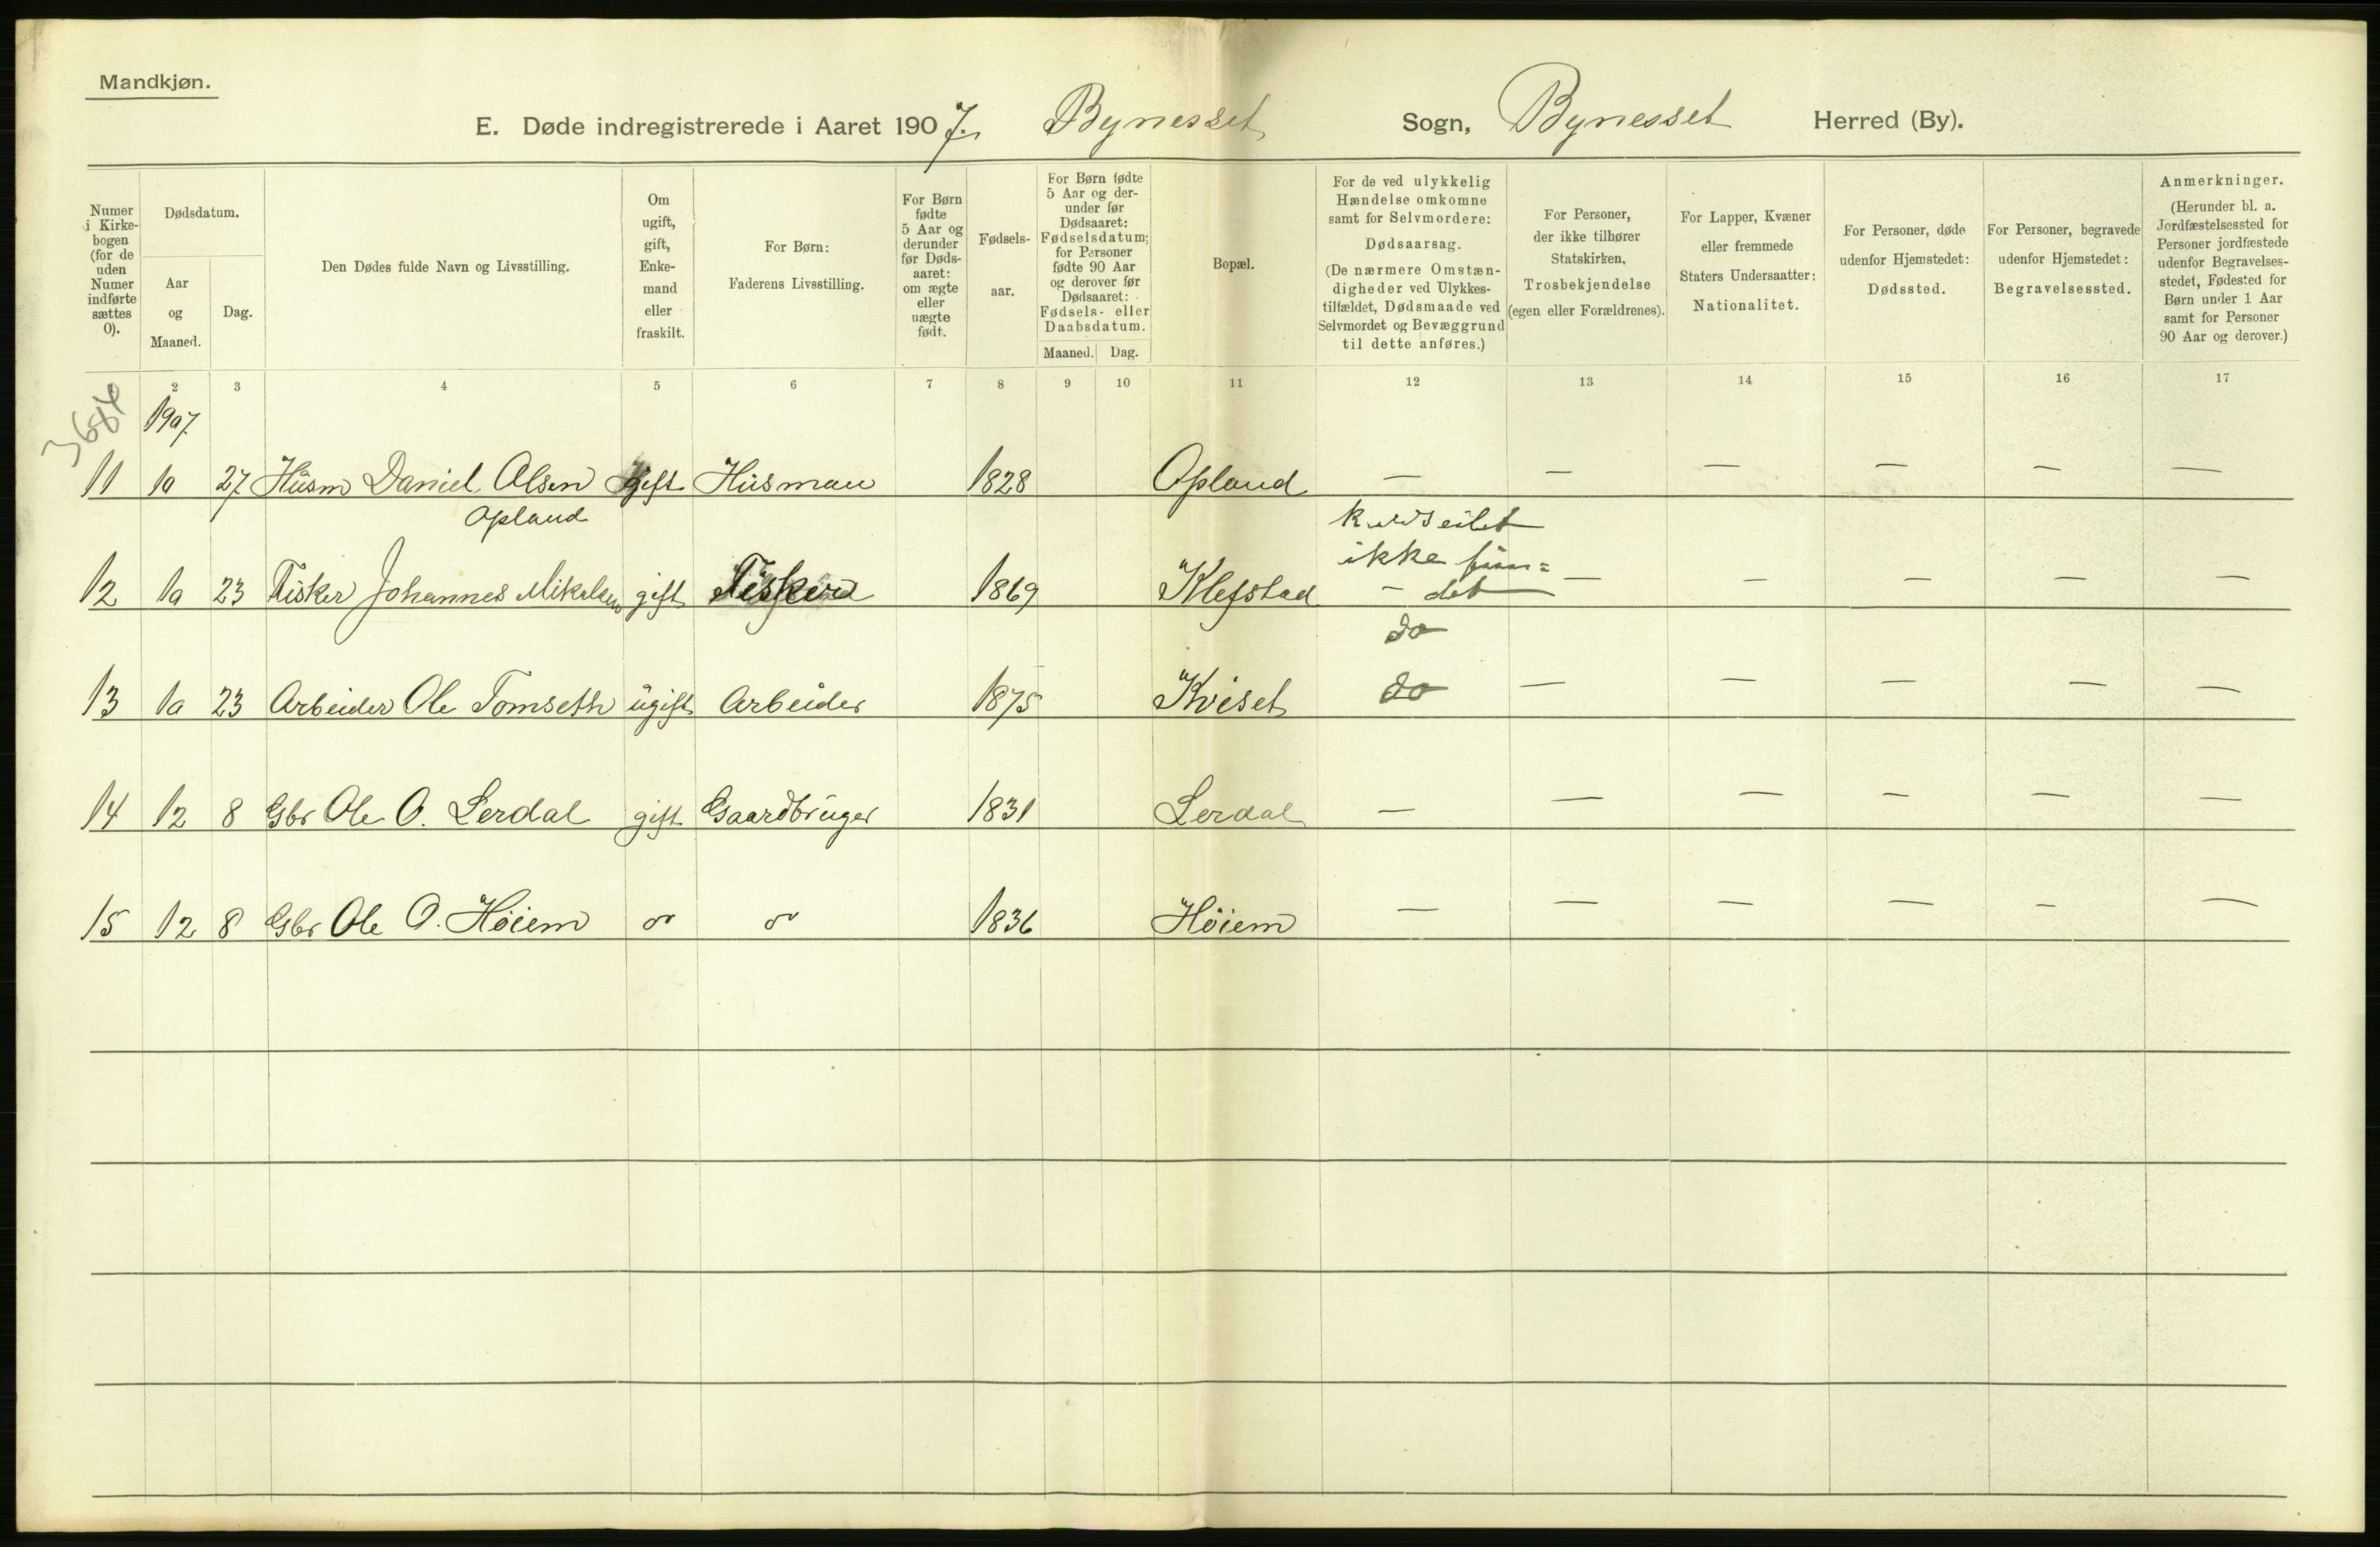 Mandkjøn.
E. Døde indregistrerede i Aaret 1907. Bynesset Sogn, Bynesset Herred (By).
Numer i Kirke-bogen (for de uden Numer indførte sættes 0).
Dødsdatum.
Aar og Maaned.
Dag.
Den Dødes fulde Navn og Livsstilling.
Om ugift, gift, Enke-mand eller fraskilt.
For Børn: Faderens Livsstilling.
For Børn fødte 5 Aar og derunder før Døds-aaret: om ægte eller uægte født.
Fødsels-aar.
For Børn fødte 5 Aar og der-under før Dødsaaret: Fødselsdatum; for Personer fødte 90 Aar og derover før Dødsaaret: Fødsels- eller Daabsdatum.
Maaned. Dag.
Bopæl.
For de ved ulykkelig Hændelse omkomne samt for Selvmordere: Dødsaarsag. (De nærmere Omstæn-digheder ved Ulykkes-tilfældet, Dødsmaade ved Selvmordet og Bevæggrund til dette anføres.)
For Personer, der ikke tilhører Statskirken, Trosbekjendelse (egen eller Forældrenes).
For Lapper, Kvæner eller fremmede Staters Undersaatter: Nationalitet.
For Personer, døde udenfor Hjemstedet: Dødssted.
For Personer, begravede udenfor Hjemstedet: Begravelsessted.
Anmerkninger. (Herunder bl. a. Jordfæstelsessted for Personer jordfæstede udenfor Begravelses-stedet, Fødested for Børn under 1 Aar samt for Personer 90 Aar og derover.)
2 3 4 5 6 7 8 9 10 11 12 13 14 15 16 17
3684
1907.
11 10 27 Husm Daniel Olsen gift Husman 1828 Opland — — — — — —
Opland
kuldseilet
ikke fun=
12 10 23 Fisker Johannes Mikalsen gift Fisker 1869 Klefstad – det — — — — —
do
13 10 23 Arbeider Ole Tomseth ugift Arbeider 1875 Kviset do — — — — —
14 12 8 Gbr Ole O. Lerdal gift Gaardbruger 1831 Lerdal — — — — — —
15 12 8 Gbr Ole O. Høiem do do 1836 Høiem — — — — — —